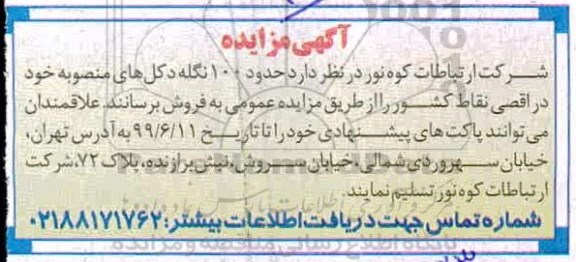 آگهی مزایده
شرکت ارتباطات کوه نور در نظر دارد حدود ۱۰۰ نگله دکل های منصوبه خود
در اقصی نقاط کشور را از طریق مزایده عمومی به فروش برسانند. علاقمندان
می توانند پاکت های پیشنهادی خود را تا تاریخ ۹۹/۶/۱۱ به آدرس تهران،
خیابان سهروردی شمالی، خیابان سروش، نبش برازنده، پلاک ۷۲، شرکت
ارتباطات کوه نور تسلیم نمایند.
شماره تماس جهت دریافت اطلاعات بیشتر: ۰۲۱۸۸۱۷۱۷۶۲
پایگاه اطلاع رسانی مناقصه و مزایده